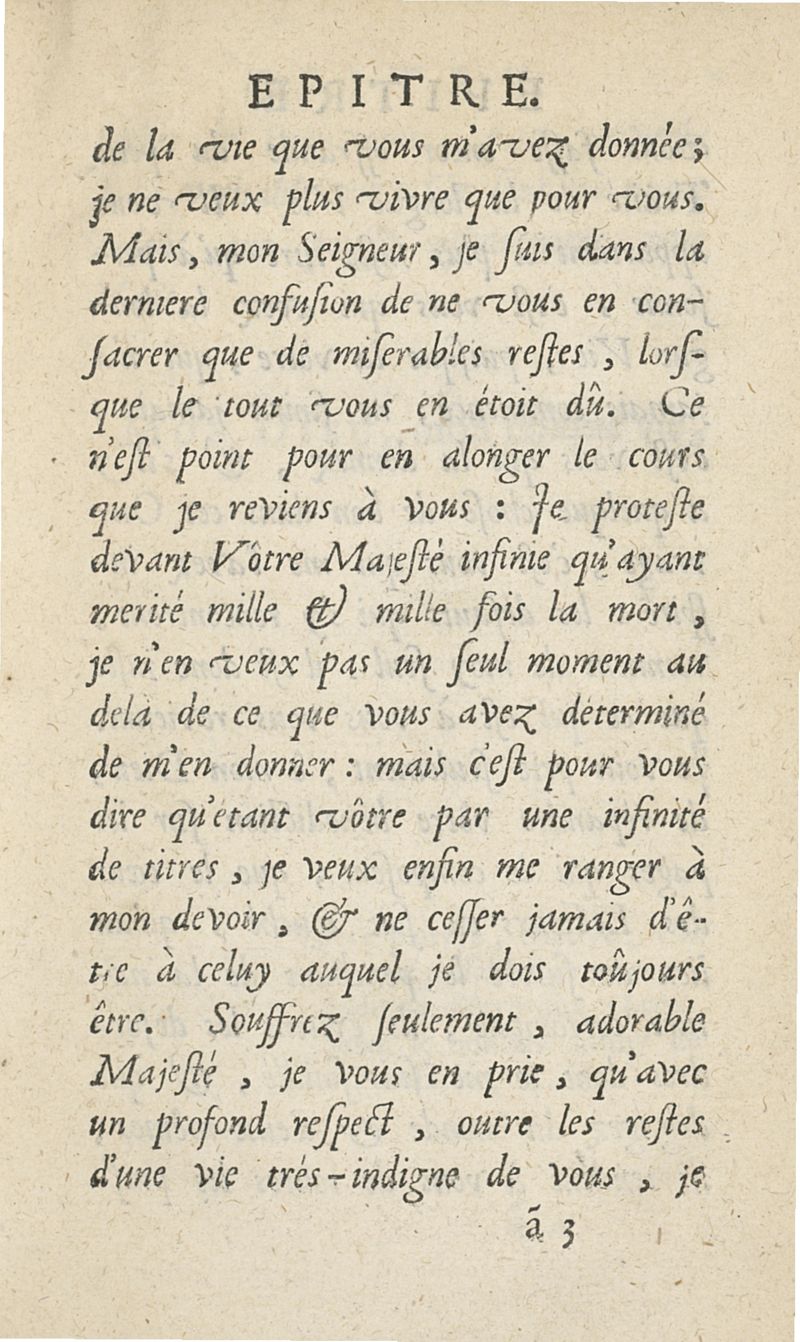 EPITRE.
de la vie que vous m'avez donnée;
je ne veux plus vivre que pour vous.
Mais, mon Seigneur, je ſuis dans la
derniere confuſion de ne vous en con-
ſacrer que de miſerables reſtes, lorſ-
que le tout vous en étoit dû. Ce
n'eſt point pour en alonger le cours
que je reviens à vous : Je proteſte
devant Vôtre Majeſté infinie qu'ayant
merité mille & mille fois la mort,
je n'en veux pas un ſeul moment au
delà de ce que vous avez déterminé
de m'en donner : mais c'eſt pour vous
dire qu'etant vôtre par une infinité
de titres, je veux enfin me ranger à
mon devoir, & ne ceſſer jamais d'ê-
tre à celuy auquel je dois toûjours
être. Souffrez ſeulement, adorable
Majeſté, je vous en prie, qu'avec
un profond reſpect, outre les reſtes
d'une vie trés-indigne de vous, je
ã 3